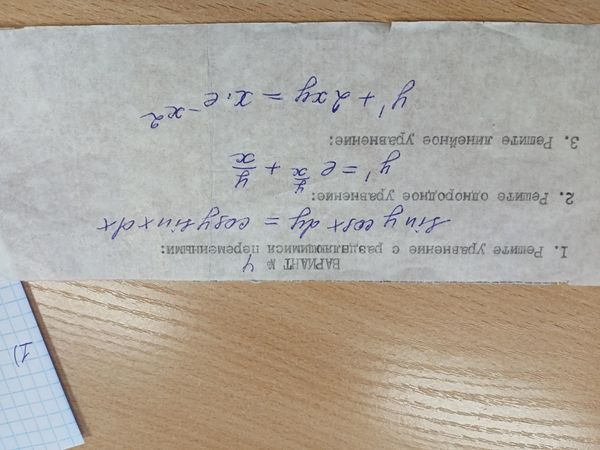 ВАРИАНТ № 4
1. Решите уравнение с разделяющимися переменными:
sin y cos x dy = cos y sin x dx
2. Решите однородное уравнение:
y' = e^(y/x) + y/x
3. Решите линейное уравнение:
y' + 2xy = x · e^(-x2)
1)